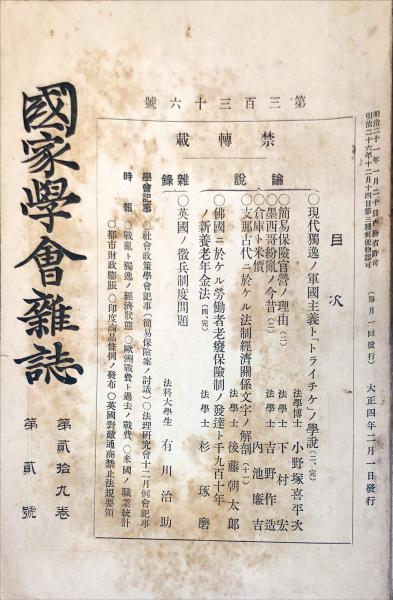 明治二十一年一月二十日内務省許可
明治二十六年十二月十四日第三種郵便物認可
(每月一回發行)
大正四年二月一日發行
第三百三十六號
禁轉載
目次
論說
○現代獨逸ノ軍國主義ト「トライチケ」ノ學說(二、完)
法學博士 小野塚喜平次
○簡易保險官營ノ理由(二)
法學士 下村宏
○墨西哥紛亂ノ今昔(二)
法學士 吉野作造
倉庫ト米價
法學士 內池廉吉
○支那古代ニ於ケル法制經濟關係文字ノ解剖(十一)
法學士 後藤朝太郎
○佛國ニ於ケル勞働者老癈保險制ノ發達ト千九百十年
ノ新養老年金法(四、完)
法學士 杉琢磨
雜錄
○英國ノ徵兵制度問題
法科大學生 有川治助
學會記事
○社會政策學會記事(簡易保險案ノ討議)○法理硏究會十二月例會記事
時報
○戰亂ト獨逸ノ經濟狀態○歐洲戰費ト過去ノ戰費○米國ノ職業統計
○都市財政膨脹○印度商品條例ノ發布○英國對敵通商禁止法規要領
國家學會雜誌
第貳拾九卷
第貳號